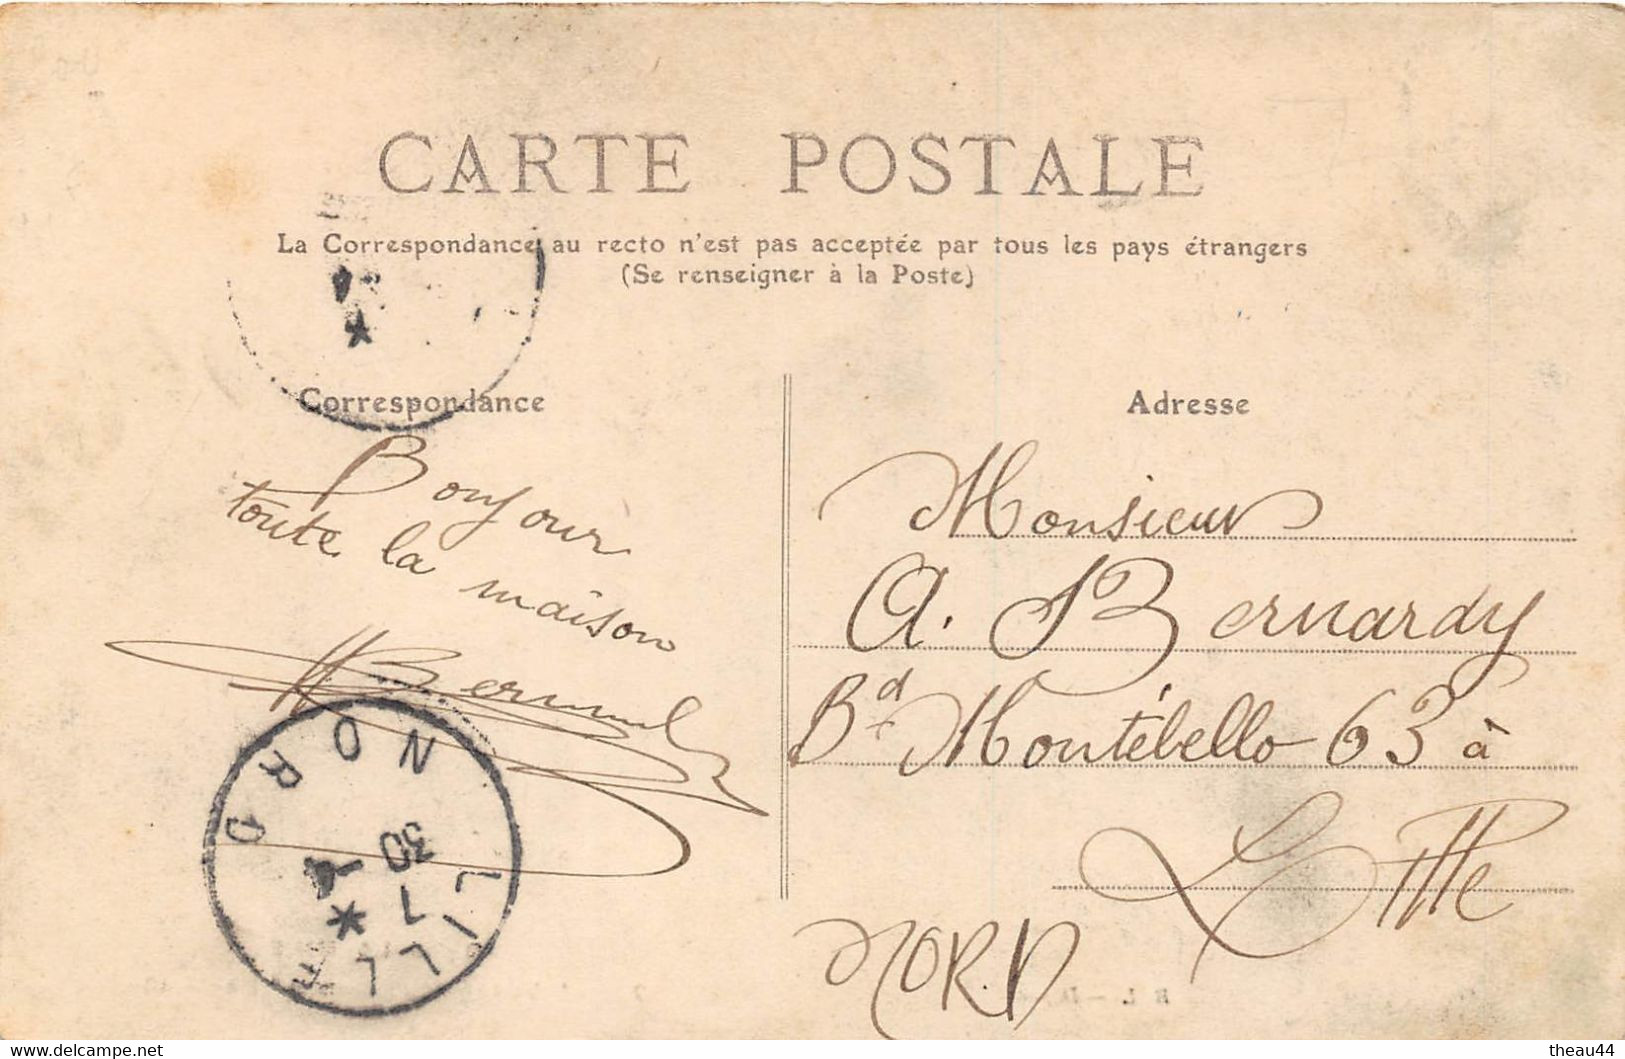 CARTE POSTALE
La Correspondance au recto n'est pas acceptée par tous les pays étrangers
(Se renseigner à la Poste)
Correspondance
Bonjour
toute la maison
Adresse
Monsieur
A. Bernardy
Bd Montébello 63 à
Lille
NORD
LILLE
NORD
7
30 -4
www.delcampe.net
theau44